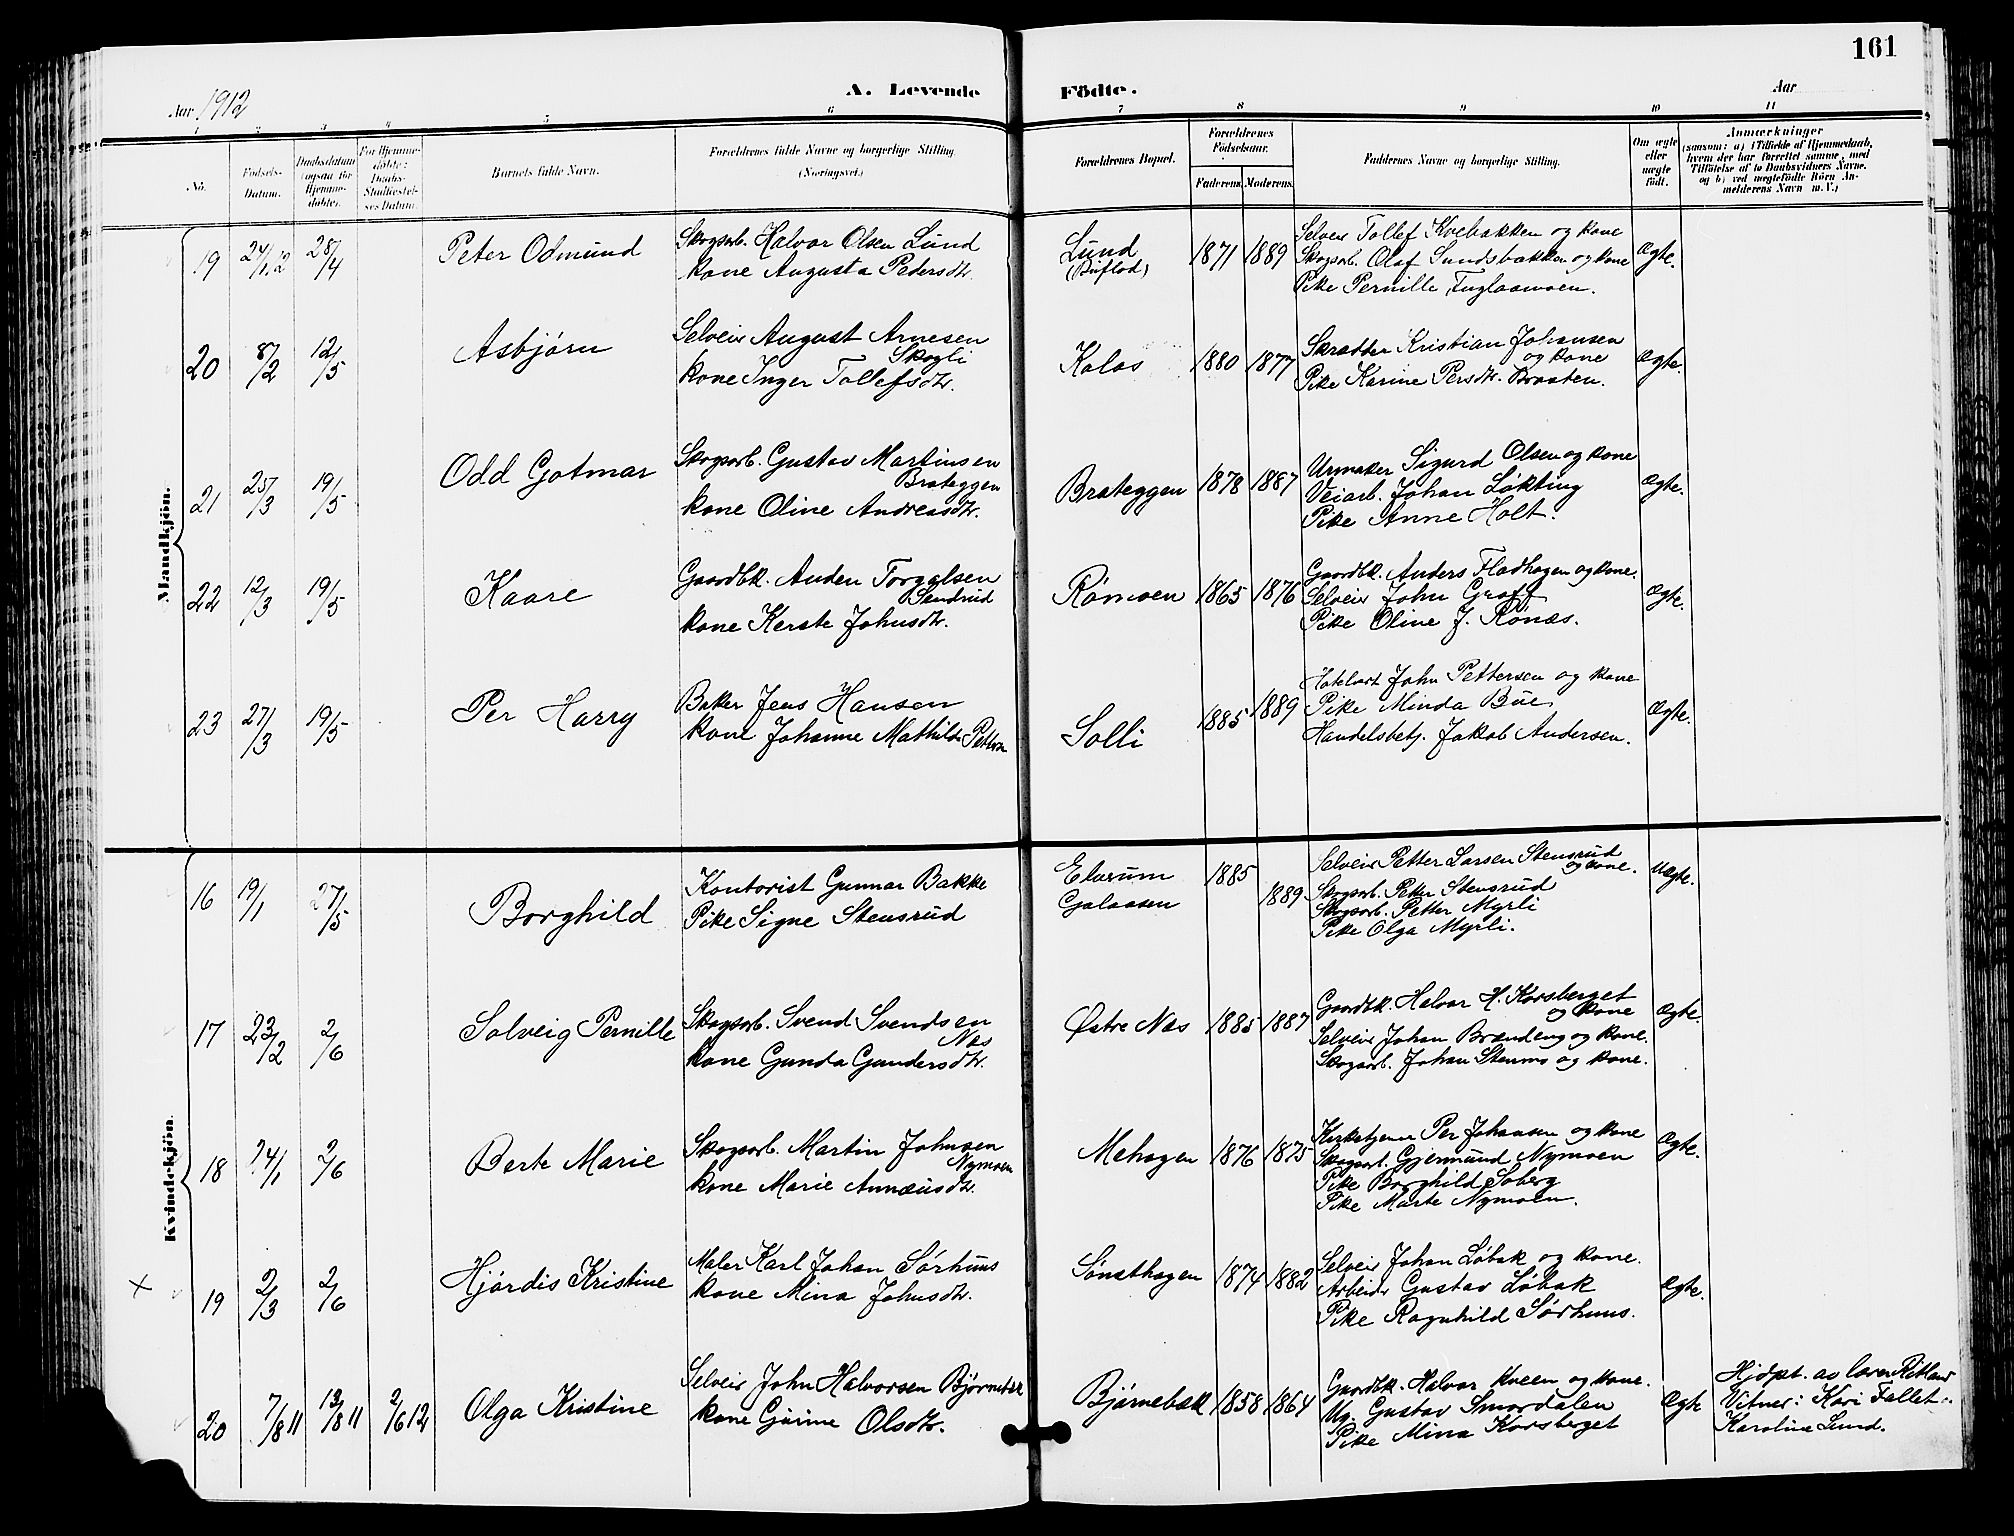 161
Aar 1912
A. Levende Födte.
Aar
1 2 3 4 5 6 7 8 9 10 11
No.
Födsels-Datum.
Daabsdatum (ogsaa for Hjemmedöbte).
For Hjemmedöbte: Daabs-Stadfæstelses Datum.
Barnets fulde Navn.
Forældrenes fulde Navne og borgerlige Stilling
(Næringsvei.)
Forældrenes Bopæl.
Forældrenes Födselsaar.
Faderens. Moderens.
Faddernes Navne og borgerlige Stilling.
Om ægte eller uægte födt.
Anmærkninger
(saasom: a) i Tilfælde af Hjemmedaab,
hvem der har forrettet samme, med
Tilföielse af to Daabsvidners Navne.
og b) ved uægtefödte Börn An-
melderens Navn m. V.)
Mandkjön.
19 24/1 12 28/4 Peter Odmund
Skogsarb. Halvor Olsen Lund
kone Augusta Pedersdtr.
Lund
(Buflod)
1871 1889
Selveier Tollef Kvebakken og kone
Skogsarb. Olaf Sundsbakken og kone
Pike Pernille Fuglaamoen.
Ægte.
20 8/2 12/5 Asbjørn
Selveier August Arnesen
Skogli
kone Inger Tollefsdtr.
Kolos
1880 1877
Skrædder Kristian Johansen
og kone
Pike Karine Persdtr. Braaten.
Ægte.
21 25/3 19/5 Odd Gotmar
Skogsarb. Gustav Martinsen
Brateggen
kone Oline Andreasdtr.
Brateggen
1878 1887
Urmaker Sigurd Olsen og kone
Veiarb. Johan Løkting
Pike Anne Holt.
Ægte.
22 12/3 19/5 Kaare
Gaardbk. Auden Torgalsen
Sandrud
kone Kerste Johnsdtr.
Rømoen
1865 1876
Gaardbk. Anders Flodhagen og kone.
Selveier John Graff
Pike Oline J. Rønæs.
Ægte.
23 27/3 19/5 Per Harry
Baker Jens Hansen
kone Johanne Mathilde Petters
Solli
1885 1889
Hotelvert John Pettersen og kone
Pike Minda Bue
Handelsbetj. Jakob Andersen.
Ægte.
Kvindekjön.
16 19/1 27/5 Borghild
Kontorist Gunnar Bakke
Pike Signe Stensrud
Elverum
Galaasen
1885
1889
Selveier Petter Larsen Stensrud
og kone.
Skogsarb. Petter Stensrud
Skogsarb. Petter Myrli
Pike Olga Myrli.
Uægte.
17 23/2 2/6 Solveig Pernille
Skogsarb. Svend Svendsen
Næs
kone Gunda Gundersdtr.
Østre Næs
1885 1887
Gaardbk. Halvor H. Korsberget
og kone
Selveier Johan Brændeng og kone.
Skogsarb. Johan Stenmo og kone.
Ægte.
18 24/1 2/6 Berte Marie
Skogsarb. Martin Johnsen
Nymoen
kone Marie Annæusdtr.
Mehagen
1876 1875
Kirketjener Per Johansen og kone
Skogsarb. Gjermund Nymoen
Pike Borghild Soberg
Pike Marte Nymoen.
Ægte.
X 19 2/3 2/6 Hjørdis Kristine
Maler Karl Johan Sørhuus
kone Mina Johnsdtr.
Sønsthagen
1874 1882
Selveier Johan Løbak og kone.
Arbeider Gustav Løbak
Pike Ragnhild Sørhuus.
Ægte.
20 7/8 11 13/8 11 2/6 12 Olga Kristine
Selveier John Halvorsen Bjørnebæk
kone Gjurine Olsdtr.
Bjørnebæk
1858 1864
Gaardbk. Halvor Kveen og kone.
Ug. Gustav Smordalen
Pike Mina Korsberget
Ægte
Hjdøpt. av
Vitner: Kari Fallet
Karoline Lund.